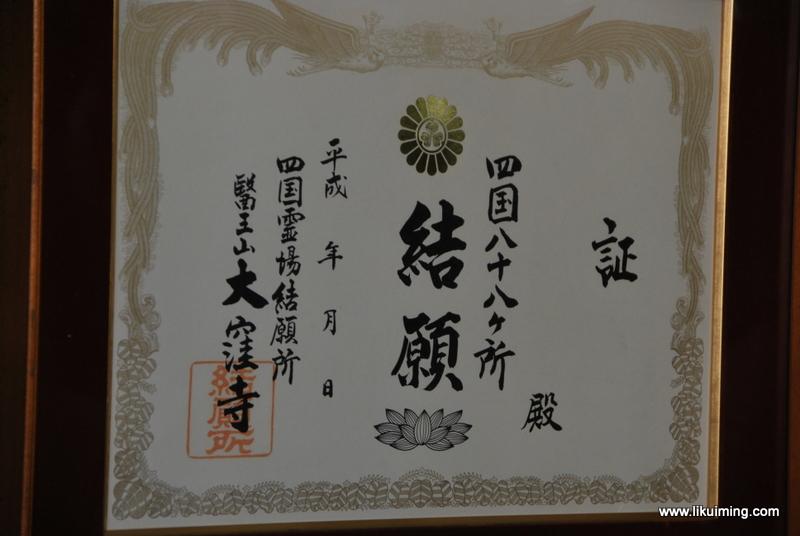 証
殿
四国八十八ヶ所
結願
平成 年 月 日
四国霊場結願所
醫王山大窪寺
結願所
www.likuiming.com